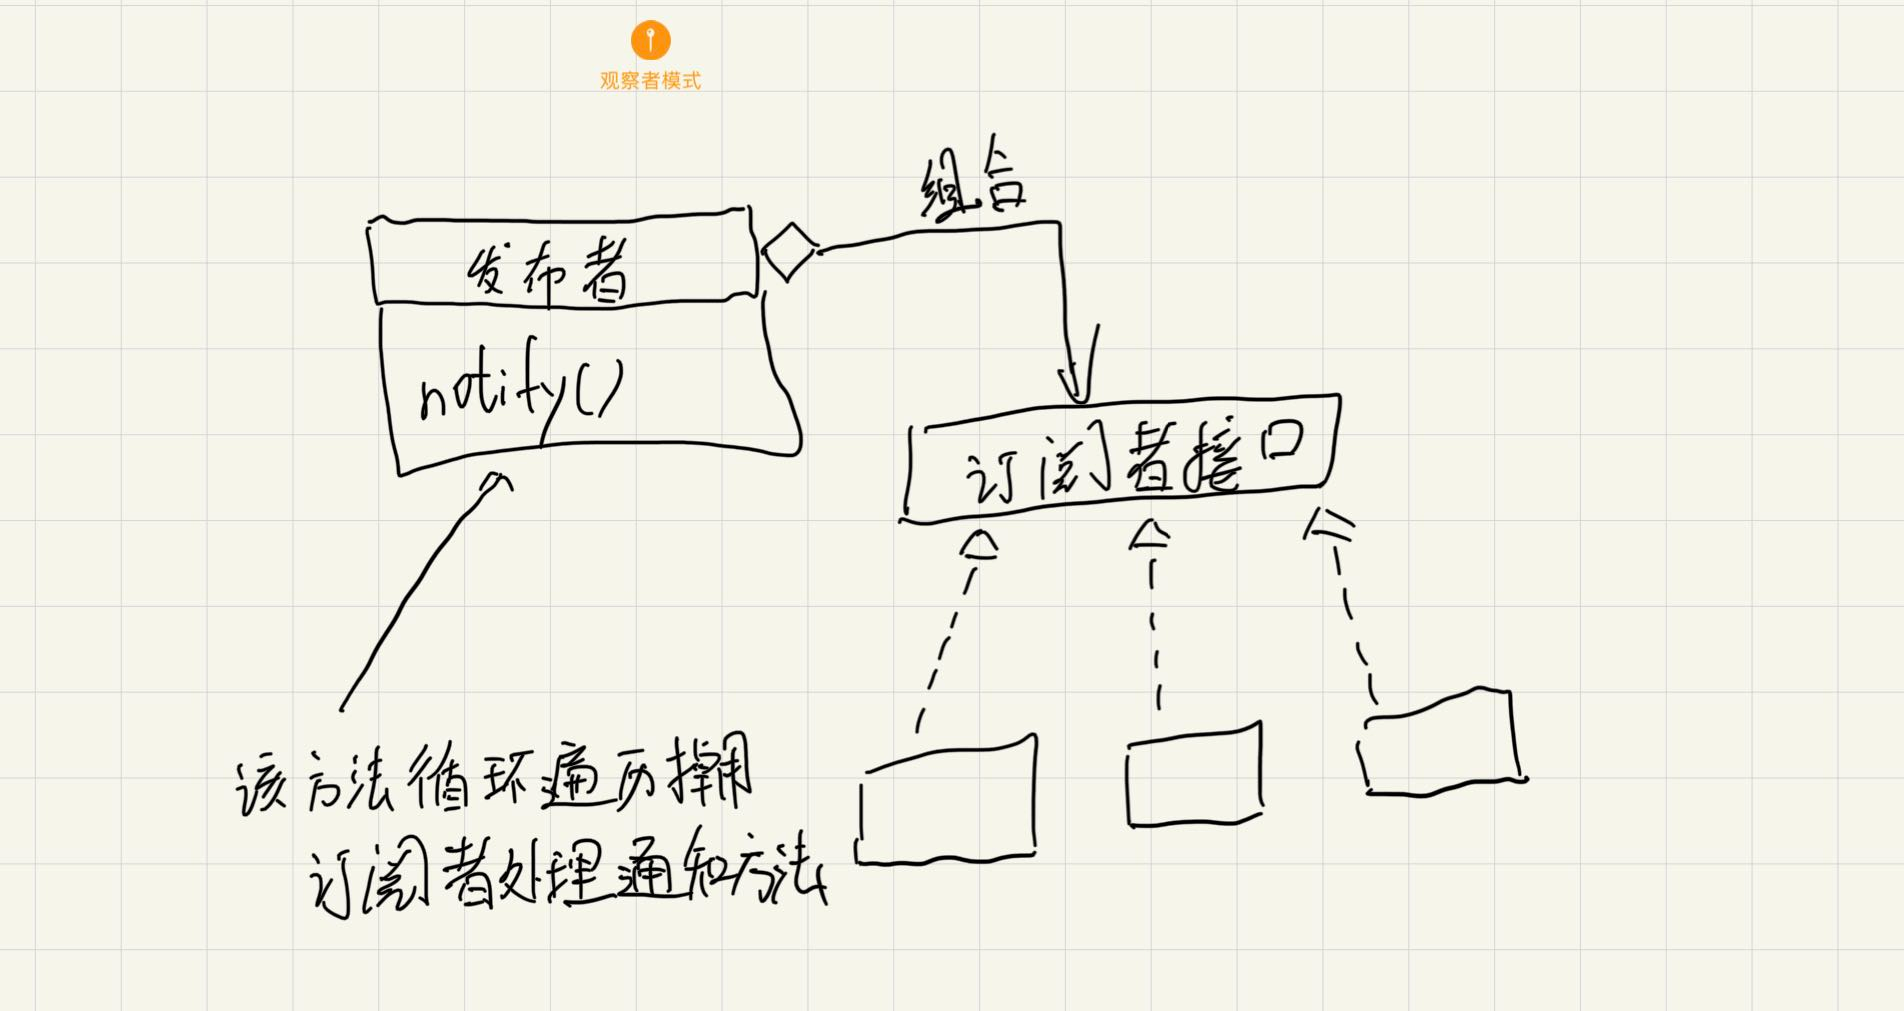 观察者模式
组合
发布者
notify()
订阅者接口
该方法循环遍历掉用
订阅者处理通知方法